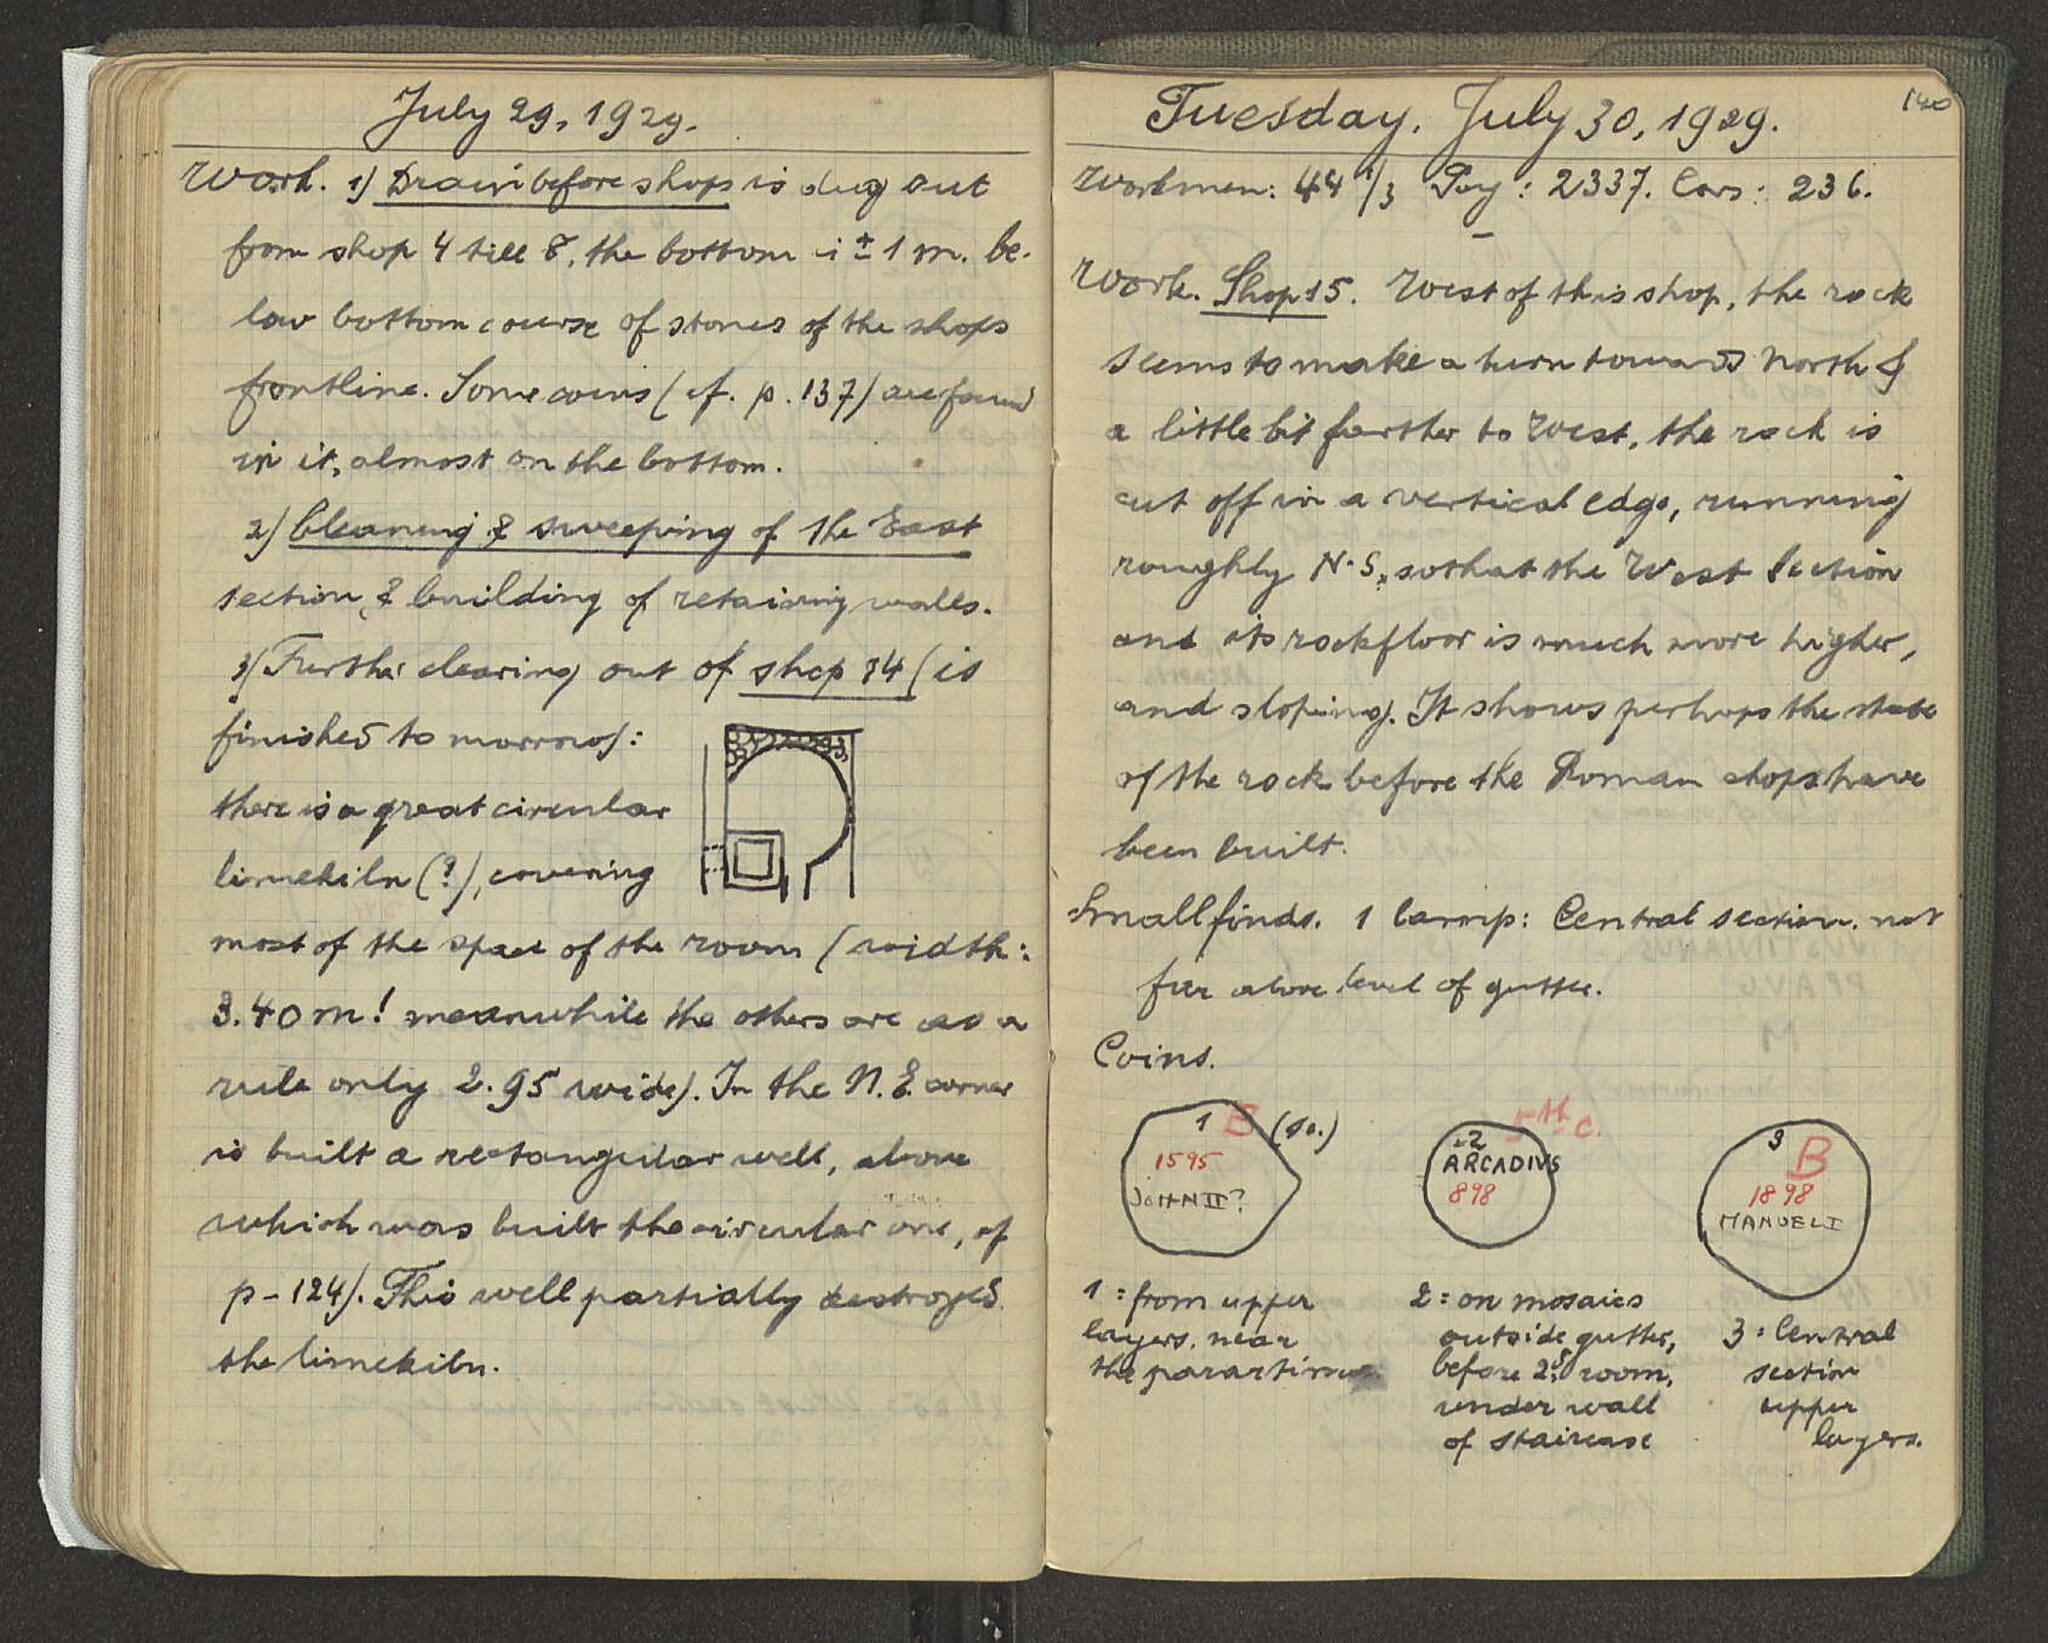 July 29, 1929.
Work. 1) Drain before shops is dug out
from shop 4 till 8, the bottom i ± 1 m. be-
low bottom course of stones of the shops
frontline. Some coins (cf. p. 137) are found
in it, almost on the bottom.
2) Cleaning & sweeping of the East
section, & building of retaining walls.
3) Further clearing out of shop 14 (is
finished to morrow):
there is a great circular
limekiln (?), covering
most of the space of the room (width:
3.40 m! meanwhile the others are as a
rule only 2.95 wide). In the N.E. corner
is built a rectangular well, above
which was built the circular one, cf
p-124). This well partially destroyed
the limekiln.
140
Tuesday, July 30, 1929.
Workmen: 44 1/3 Pay: 2337. Cars: 236.
Work. Shop 15. West of this shop, the rock
seems to make a turn towards North &
a little bit further to West, the rock is
cut off in a vertical edge, running
roughly N-S, so that the West Section
and its rockfloor is much more higher,
and sloping. It shows perhaps the state
of the rock before the Roman shops have
been built.
Small finds. 1 lamp: Central section. not
far above level of gutter.
Coins.
1 B (sc.)
1595
JOHN II?
5th c.
2
ARCADIUS
898
3
B
1898
MANUEL I
1 = from upper
layers, near
the
2 = on mosaics
outside gutter,
before 2d room,
under wall
of staircase
3 = Central
section
upper
layers.